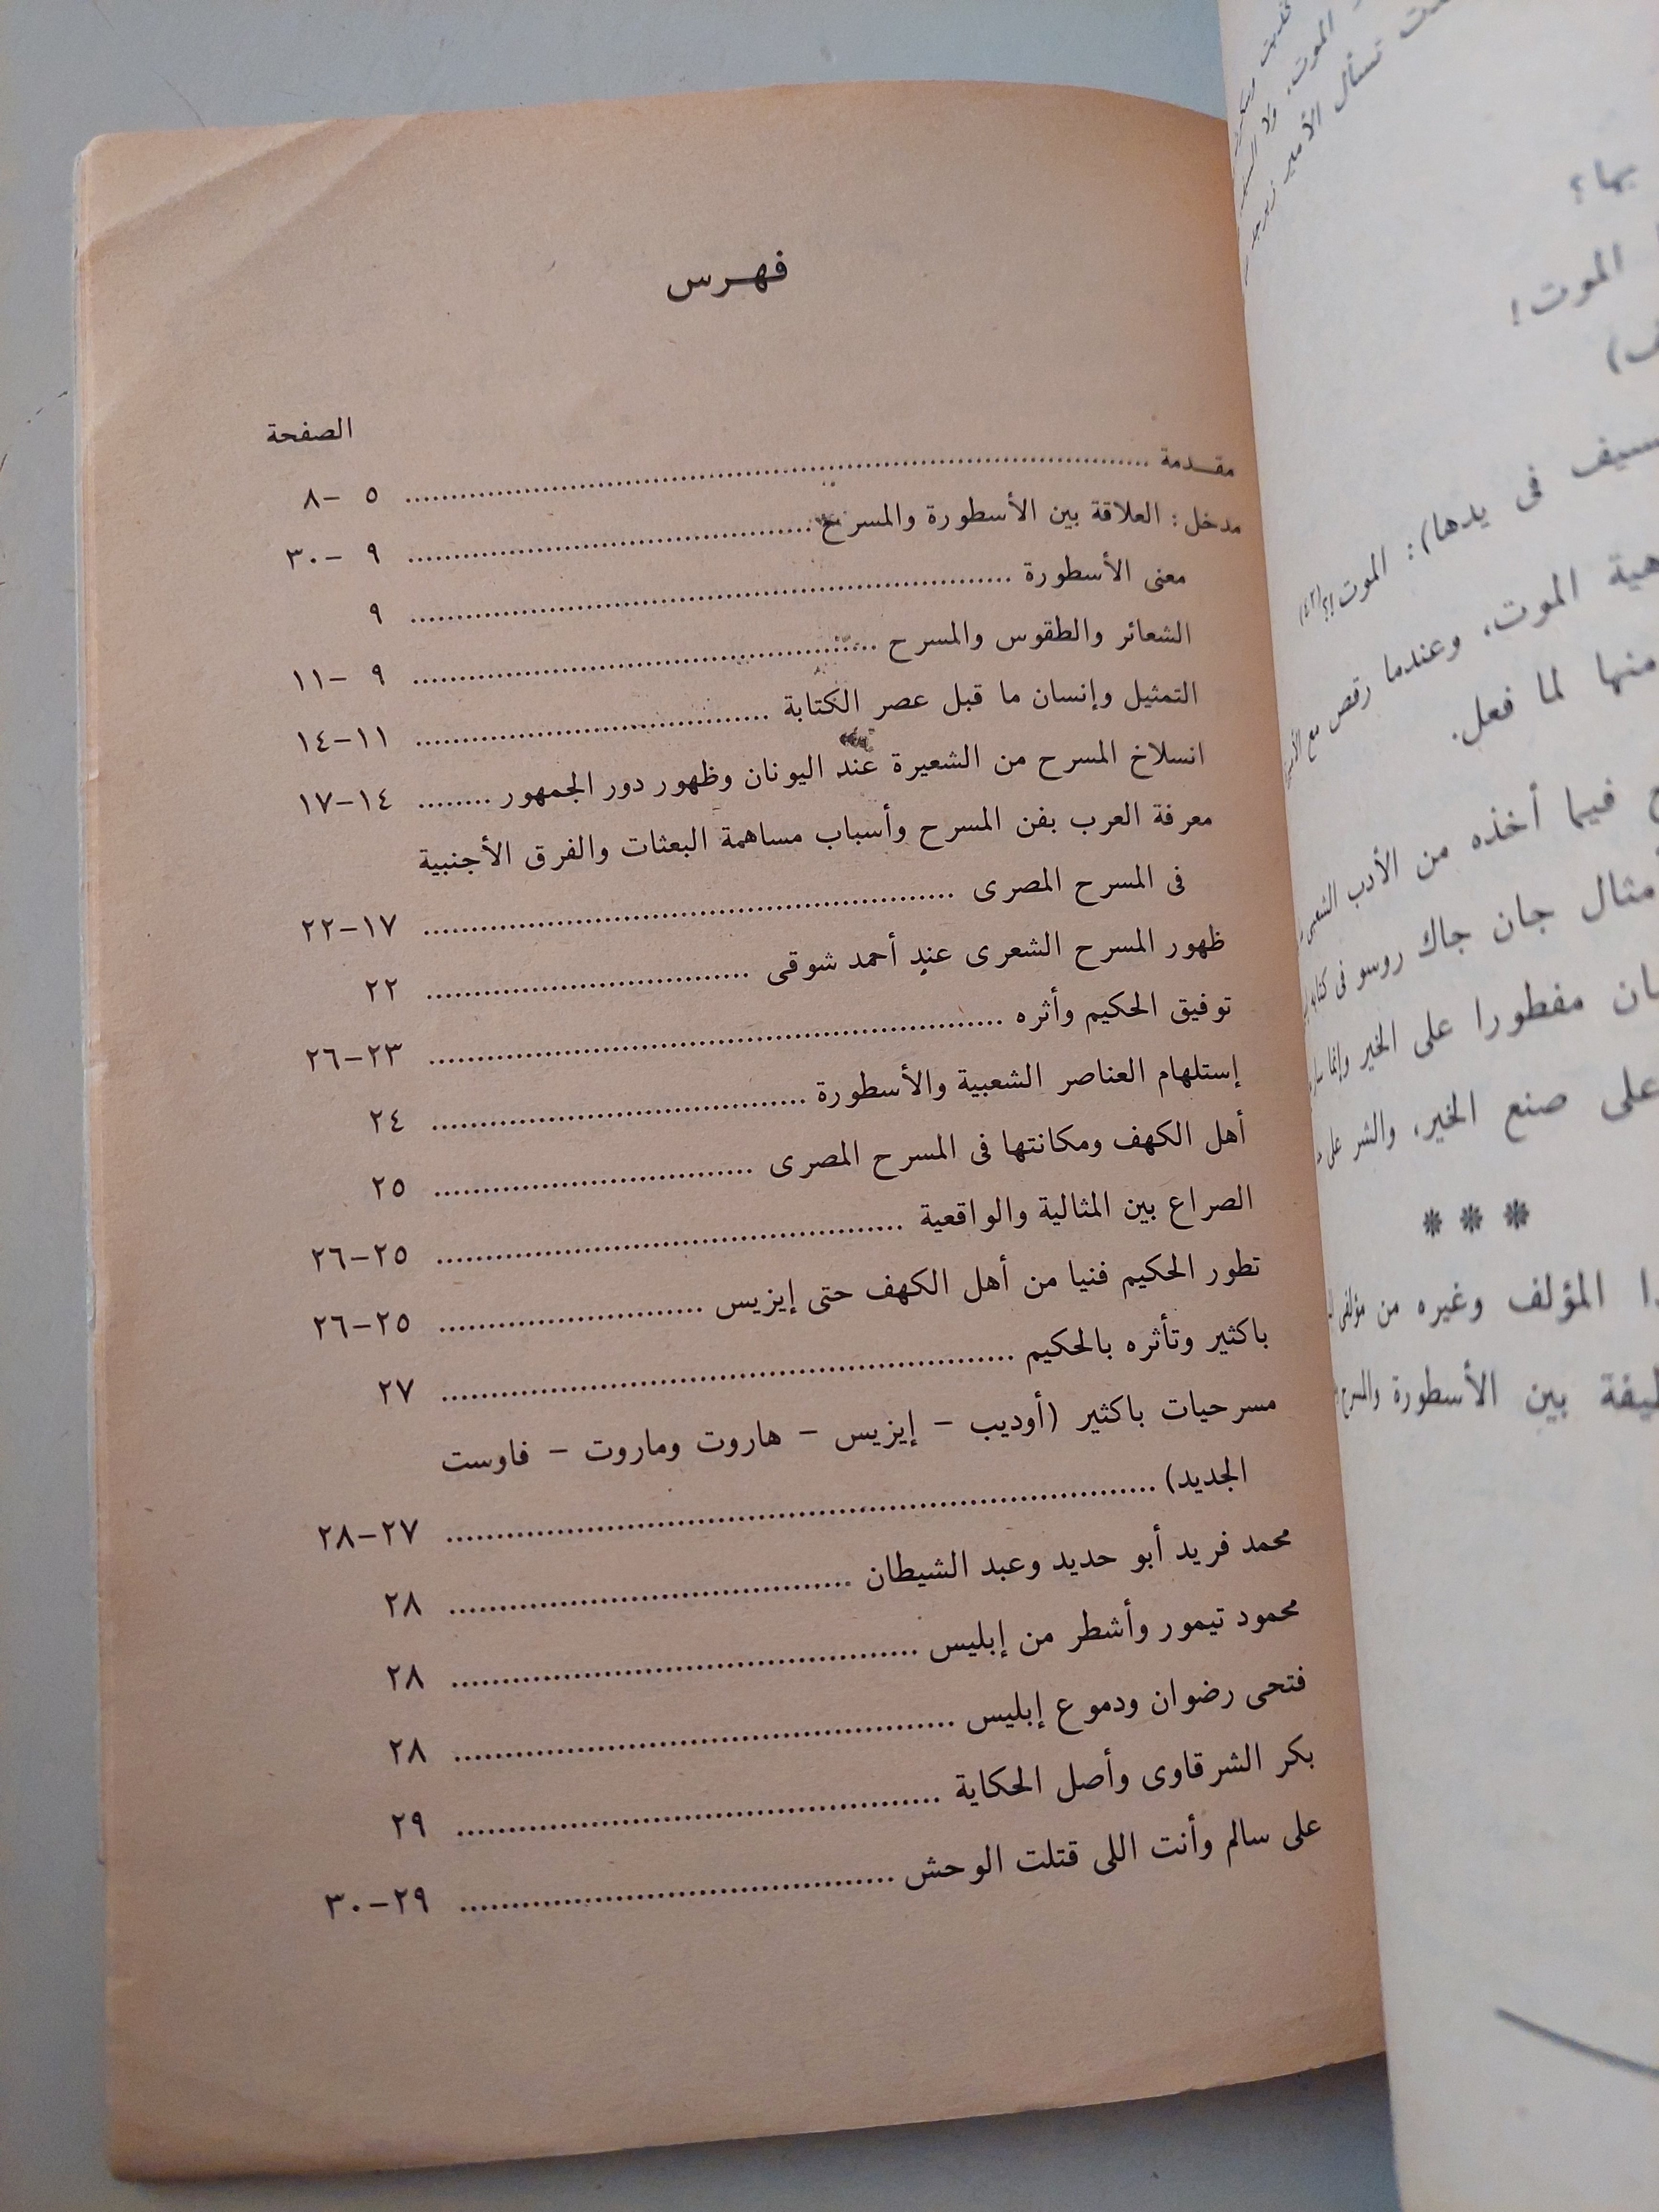 فهرس
الصفحة
مقدمة ........ ٥ -٨
مدخل: العلاقة بين الأسطورة والمسرح ........ ٩ -٣٠
معنى الأسطورة ........ ٩
الشعائر والطقوس والمسرح ........ ٩ -١١
التمثيل وإنسان ما قبل عصر الكتابة ........ ١١-١٤
انسلاخ المسرح من الشعيرة عند اليونان وظهور دور الجمهور ........ ١٤-١٧
معرفة العرب بفن المسرح وأسباب مساهمة البعثات والفرق الأجنبية
فى المسرح المصرى ........ ١٧-٢٢
ظهور المسرح الشعرى عند أحمد شوقى ........ ٢٢
توفيق الحكيم وأثره ........ ٢٣-٢٦
إستلهام العناصر الشعبية والأسطورة ........ ٢٤
أهل الكهف ومكانتها فى المسرح المصرى ........ ٢٥
الصراع بين المثالية والواقعية ........ ٢٥-٢٦
تطور الحكيم فنيا من أهل الكهف حتى إيزيس ........ ٢٥-٢٦
باكثير وتأثره بالحكيم ........ ٢٧
مسرحيات باكثير (أوديب - إيزيس - هاروت وماروت - فاوست
الجديد) ........ ٢٧-٢٨
محمد فريد أبو حديد وعبد الشيطان ........ ٢٨
محمود تيمور وأشطر من إبليس ........ ٢٨
فتحى رضوان ودموع إبليس ........ ٢٨
بكر الشرقاوى وأصل الحكاية ........ ٢٩
على سالم وأنت اللى قتلت الوحش ........ ٢٩-٣٠
الموت، ولا
تسأل الأمير
بها؟
الموت!
فى يدها): الموت!؟(٤٢)
الموت، وعندما رقص مع
منها لما فعل.
فيما أخذه من الأدب الشعبى
جان جاك روسو فى كتابه
مفطورا على الخير وإنما
على صنع الخير، والشر على
* * *
المؤلف وغيره من مؤلفى
بين الأسطورة والمسرح